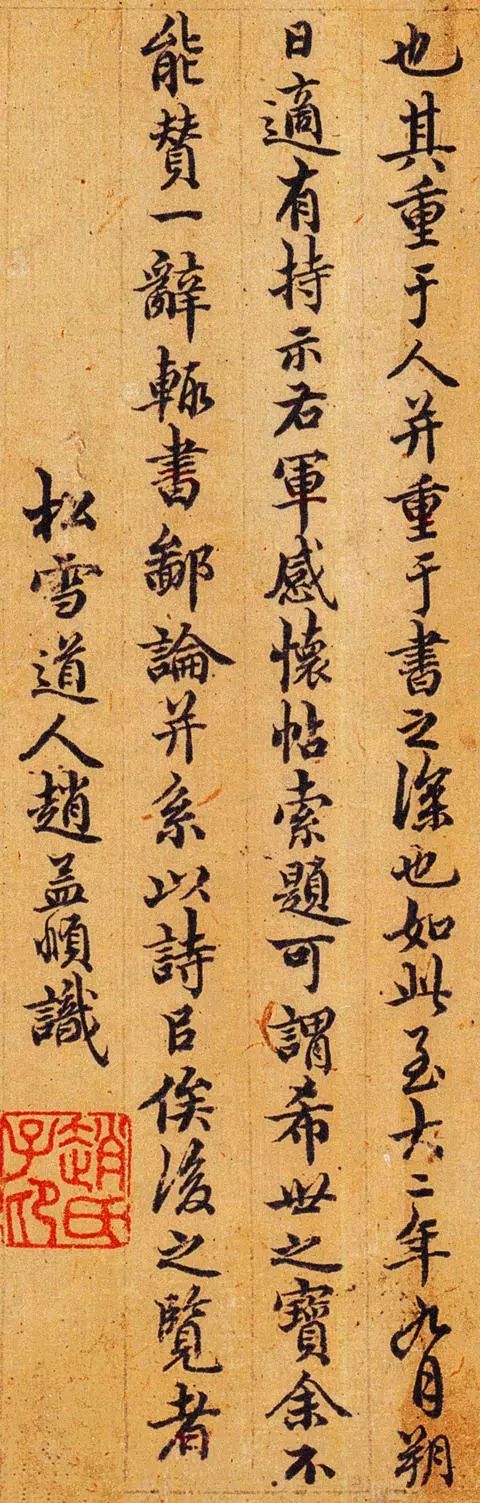 也其重于人并重于書之深也如此至大二年九月朔
日適有持示右軍感懷帖索題可謂希世之寶余不
能贊一辭輒書鄙論并系以詩㠯俟後之覽者
松雪道人趙孟頫識
趙氏子昂